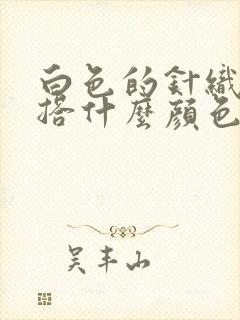 白色的針織
搭什麼顏色
吳丰山